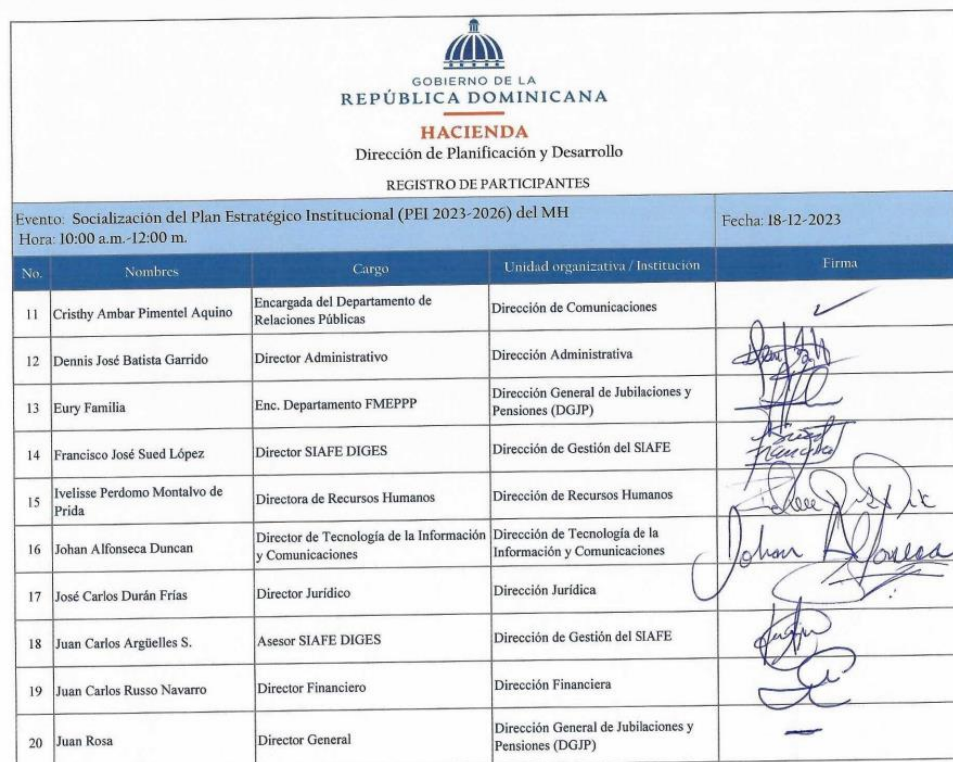 GOBIERNO DE LA
REPÚBLICA DOMINICANA
HACIENDA
Dirección de Planificación y Desarrollo
REGISTRO DE PARTICIPANTES
Evento: Socialización del Plan Estratégico Institucional (PEI 2023-2026) del MH
Hora: 10:00 a.m.-12:00 m.
Fecha: 18-12-2023
No. Nombres Cargo Unidad organizativa / Institución Firma
11 Cristhy Ambar Pimentel Aquino Encargada del Departamento de Relaciones Públicas Dirección de Comunicaciones
12 Dennis José Batista Garrido Director Administrativo Dirección Administrativa
13 Eury Familia Enc. Departamento FMEPPP Dirección General de Jubilaciones y Pensiones (DGJP)
14 Francisco José Sued López Director SIAFE DIGES Dirección de Gestión del SIAFE
15 Ivelisse Perdomo Montalvo de Prida Directora de Recursos Humanos Dirección de Recursos Humanos
16 Johan Alfonseca Duncan Director de Tecnología de la Información y Comunicaciones Dirección de Tecnología de la Información y Comunicaciones Johan Alfonseca
17 José Carlos Durán Frías Director Jurídico Dirección Jurídica
18 Juan Carlos Argüelles S. Asesor SIAFE DIGES Dirección de Gestión del SIAFE
19 Juan Carlos Russo Navarro Director Financiero Dirección Financiera
20 Juan Rosa Director General Dirección General de Jubilaciones y Pensiones (DGJP)